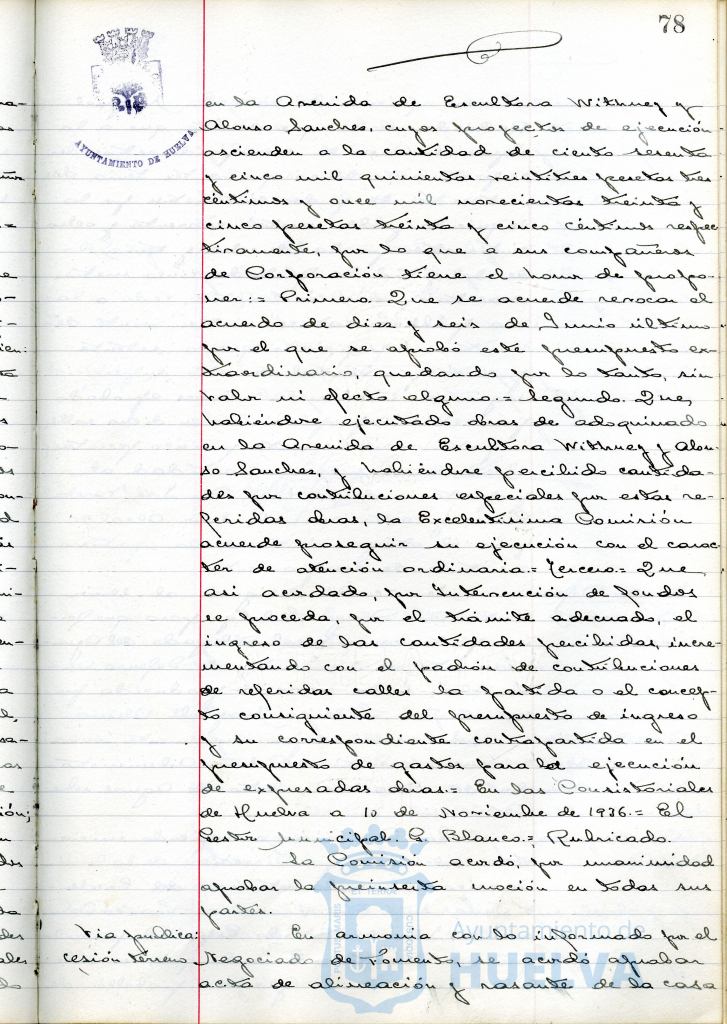 78
AYUNTAMIENTO DE HUELVA
en la Avenida de Escultora Withney y
Alonso Sanches, cuyos proyectos de ejecución
ascienden a la cantidad de ciento sesenta
y cinco mil quinientas veintitres pesetas tres
céntimos y once mil novecientas treinta y
cinco pesetas treinta y cinco céntimos respec
tivamente, por lo que a sus compañeros
de Corporación tiene el honor de propo-
ner:= Primero. Que se acuerde revocar el
acuerdo de diez y seis de Junio último
por el que se aprobó este presupuesto ex-
traordinario, quedando por lo tanto, sin
valor ni efecto alguno.= Segundo. Que,
habiéndose ejecutado obras de adoquinado
en la Avenida de Escultora Withney y Alon-
so Sanches, y habiéndose percibido cantida-
des por contribuciones especiales por estas re-
feridas obras, la Excelentísima Comisión
acuerde proseguir su ejecución con el carac-
tér de atención ordinaria.= Tercero.= Que
asi acordado, por Intervención de fondos
se proceda, por el trámite adecuado, el
ingreso de las cantidades percibidas, incre-
mentando con el padrón de contribuciones
de referidas calles la partida o el concep-
to consiguiente del presupuesto de ingreso
y su correspondiente contrapartida en el
presupuesto de gastos para la ejecución
de expresadas obras.= En las Consistoriales
de Huelva a 10 de Noviembre de 1936.= El
Gestor Municipal. G. Blanco.= Rubricado.
La Comisión acordó, por unanimidad
aprobar la preinserta moción en todas sus
partes.
Via publica: En armonia con lo informado por el
cesión terreno Negociado de Fomento se acordó aprobar
acta de alineación y rasante de la casa
Ayuntamiento de
HUELVA